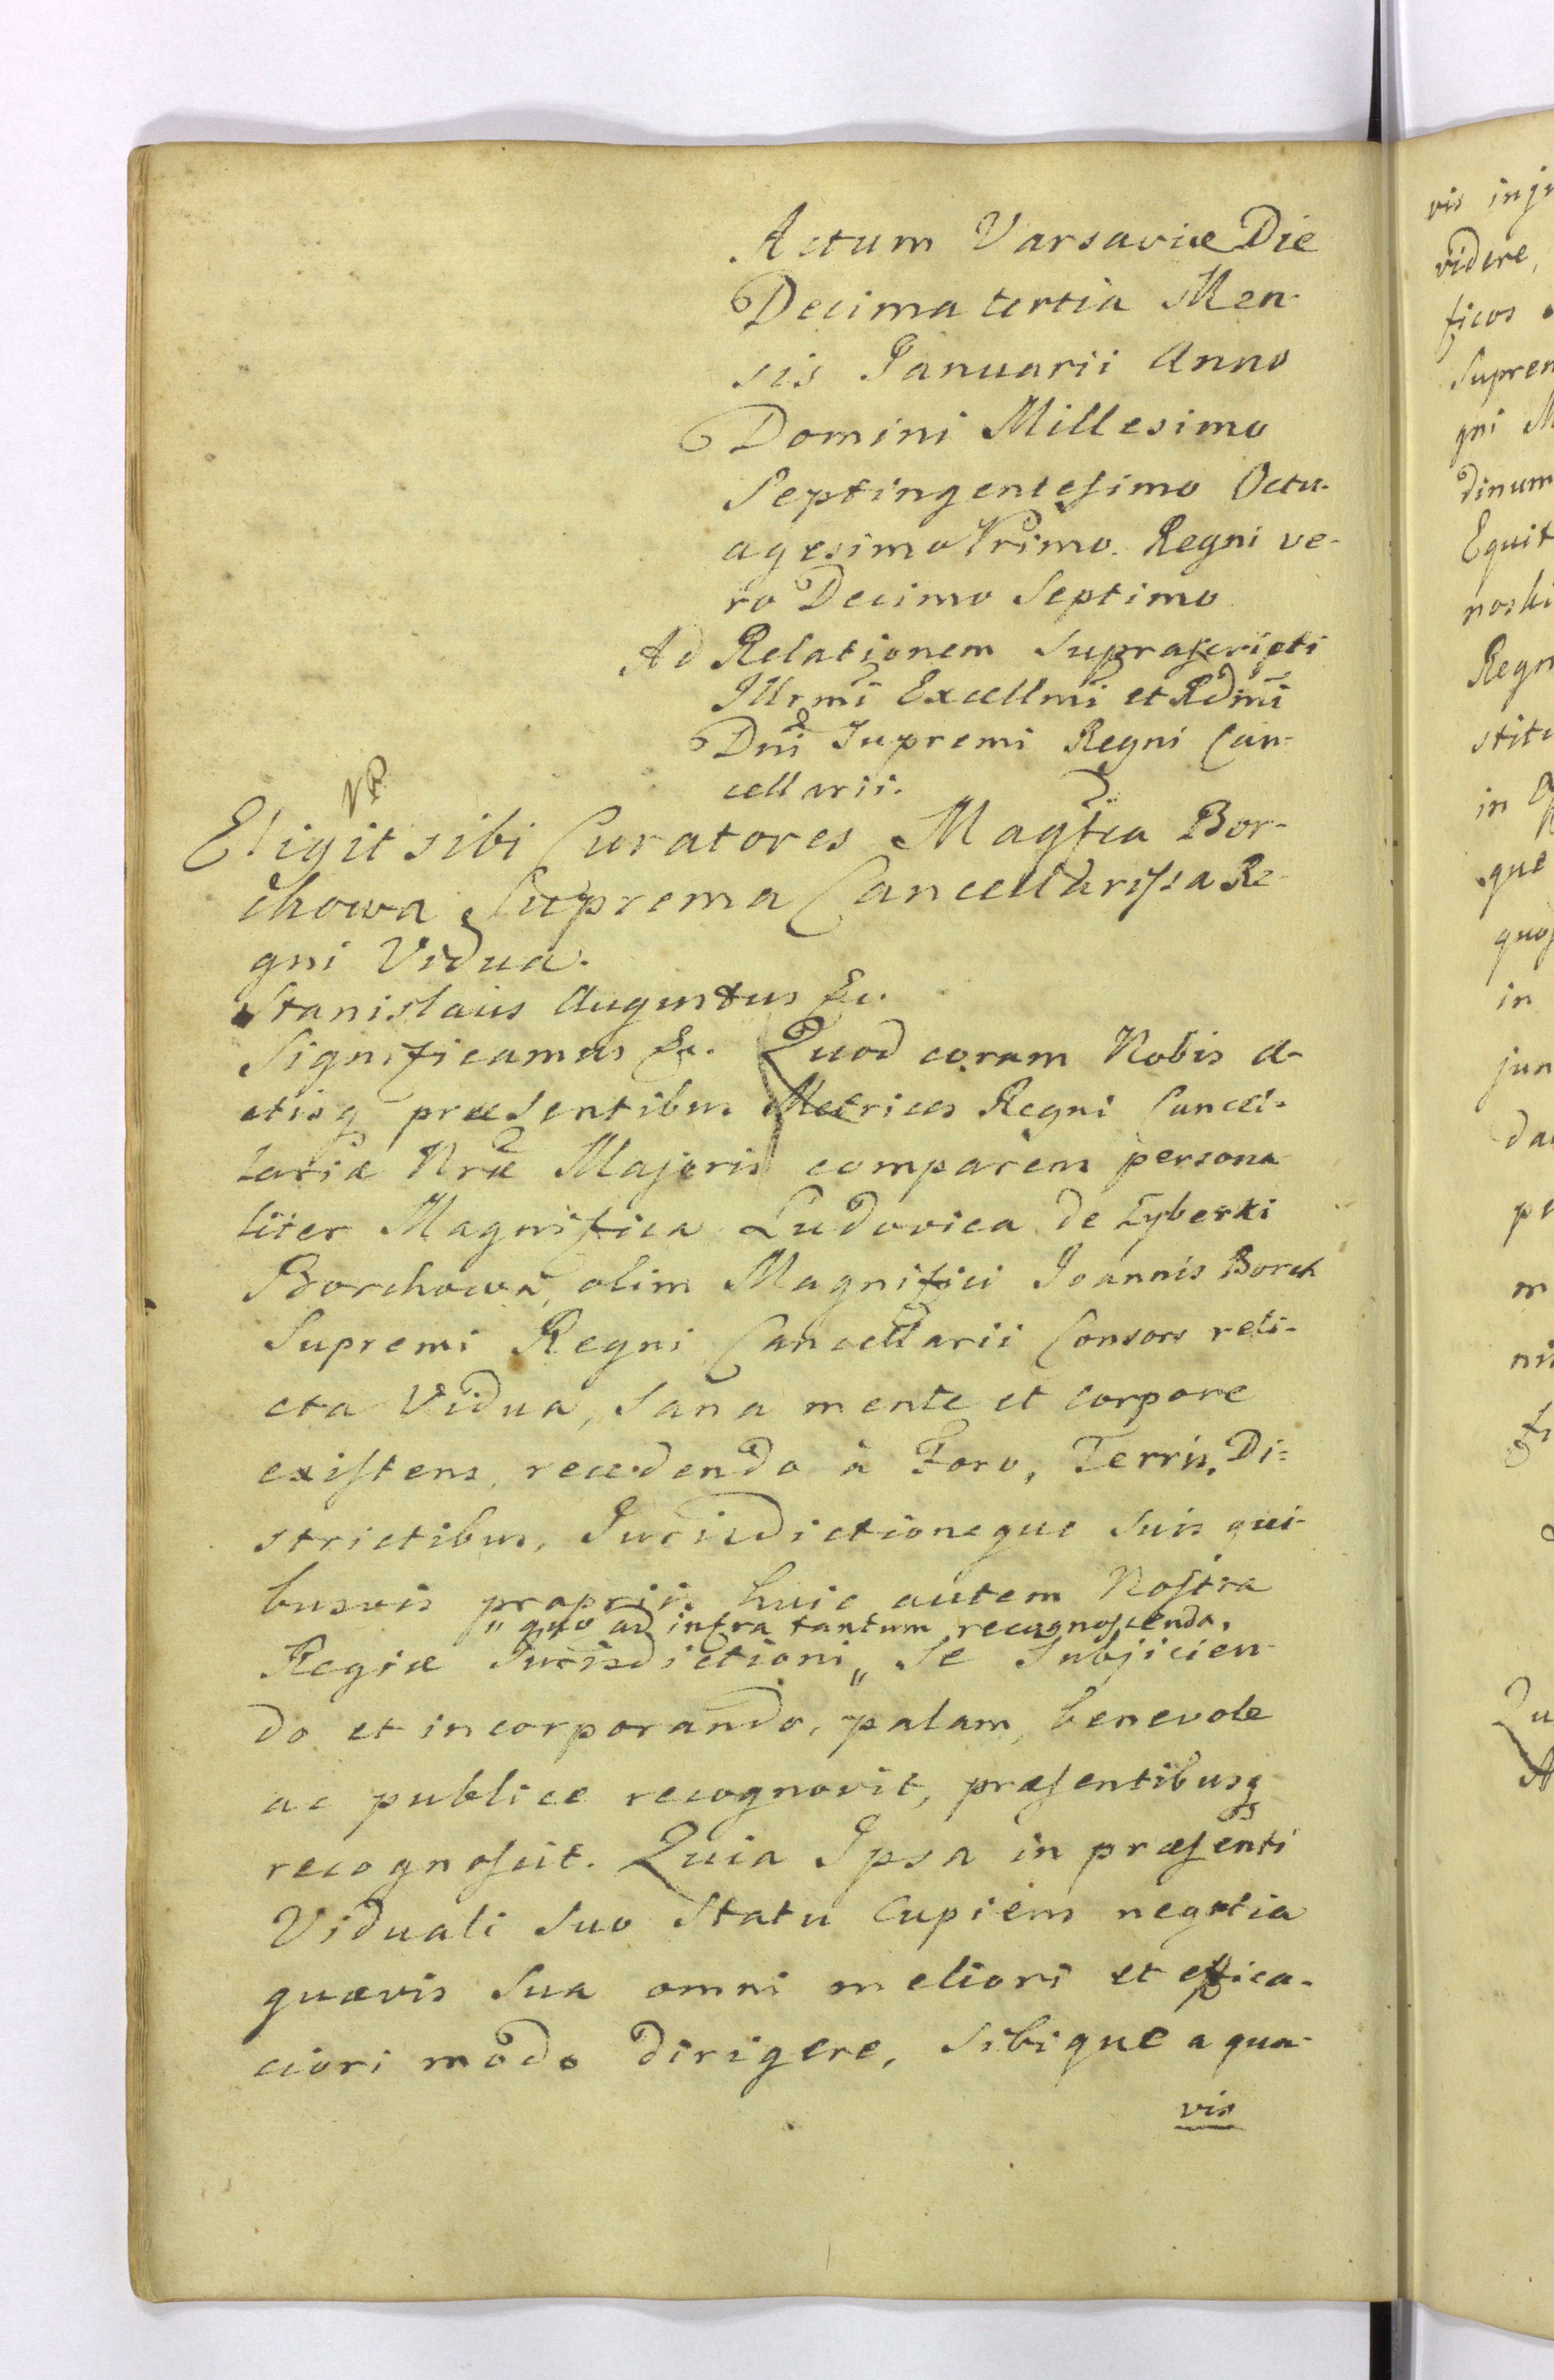 Actum Varsaviæ Die
Decima tertia Men-
sis Januarii Anno
Domini Millesimo
Septingentesimo Octu-
agesimo Primo. Regni ve-
ro Decimo Septimo
Ad Relationem suprascripti
Illrmi Excellmi et Rdmi
Dni Supremi Regni Can-
cellarii.
Eligit sibi Curatores Magfca Bor-
chowa Suprema Cancellarissa Re-
gni Vidua.
Stanislaus Augustus &c.
Significamus &c. Quod coram Nobis a-
ctisq præsentibus Metrices Regni Cancel-
lariæ Nræ Majoris comparens persona
liter Magnifica Ludovica de Zyberki
Borchowa, olim Magnifici Joannis Borch
Supremi Regni Cancellarii Consors reli-
cta Vidua, sana mente et corpore
existens, recedendo à Foro, Terris, Di-
strictibus, Jurisdictioneque suis qui-
busvis propriis huic autem Nostra
" quo ad infra tantum recognoscenda,
Regiæ Jurisdictioni " se subjicien-
do et incorporando, palam, benevole
ac publice recognovit, præsentibusq
recognoscit. Quia Ipsa in præsenti
Viduali suo statu cupiens negotia
quævis sua omni meliori et effica-
ciori modo dirigere, sibique a qua-
vis
vis inju
videre,
ficos
Suprem
gni M
dinum
Equit
noski
Regn
stitu
in
que
quos
in
jun